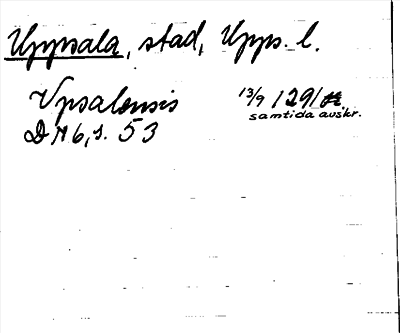 Uppsala, stad, Upps. l.
Vpsalensis 13/9 1291
samtida avskr.
D N 6, s. 53